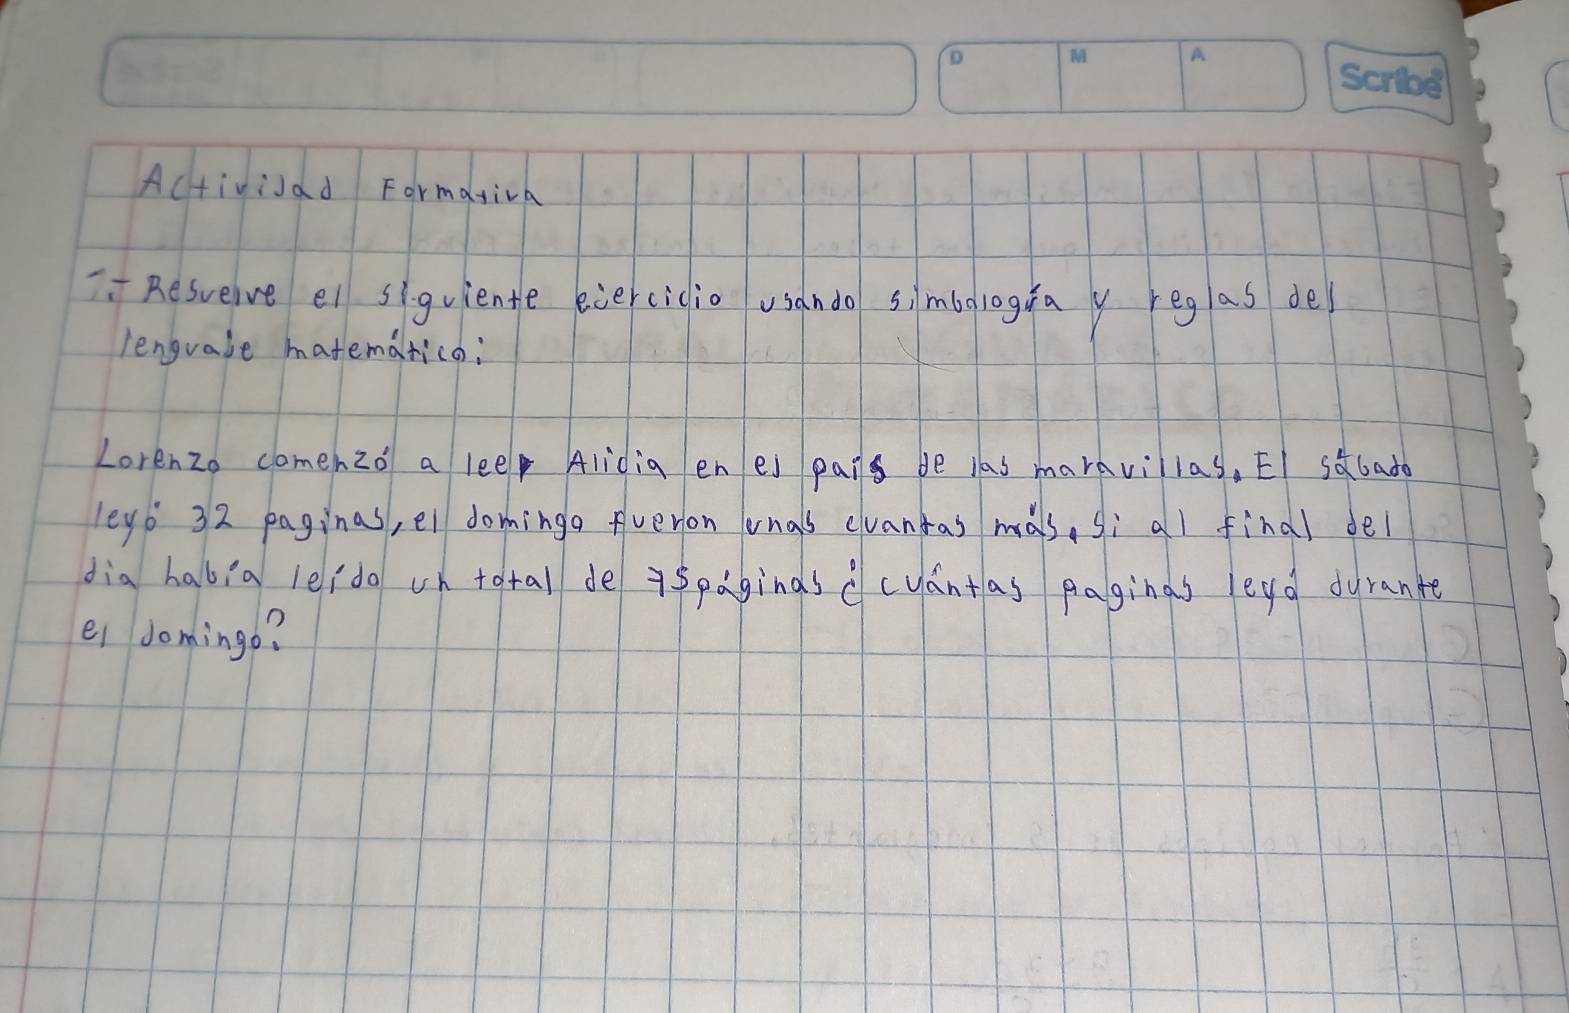 D M A Scribe
Actividad Formativa
1.- Resuelve el siguiente ejercicio usando simbología y reglas del
lenguaje matemático:
Lorenzo comenzó a leer Alicia en el pais de las maravillas. El sábado
leyó 32 paginas, el domingo fueron unas cuantas más. Si al final del
dia había leído un total de 75 páginas ¿cuántas paginas leyó durante
el domingo?